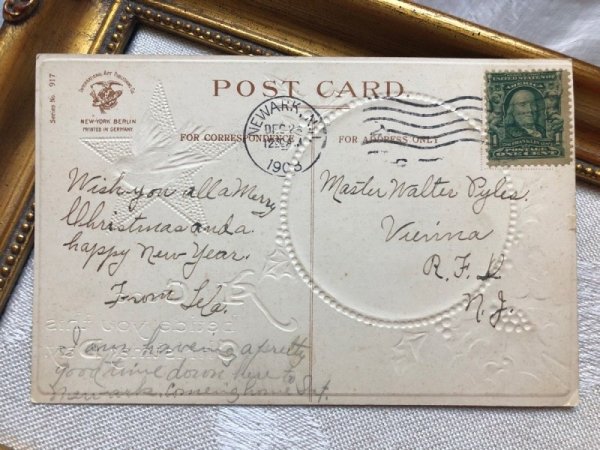 Series No. 917
International Art Publishing Co.
NEW-YORK BERLIN
PRINTED IN GERMANY
POST CARD.
FOR CORRESPONDENCE
FOR ADDRESS ONLY
NEWARK, N.J.
DEC 23
1908
UNITED STATES OF AMERICA
FRANKLIN
Wish you all a Merry
Christmas and a
happy New Year.
From
Master Walter Pyles.
Vienna
R. F. D
N. J.
I am haveing a pretty
good time down here to
Newark. Comeing home Sat.